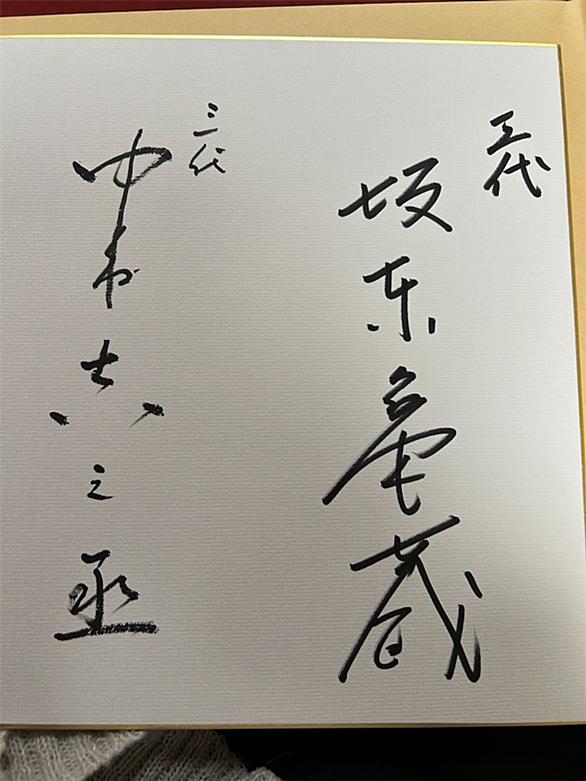 三代
坂東亀蔵
三代
中村吉之丞